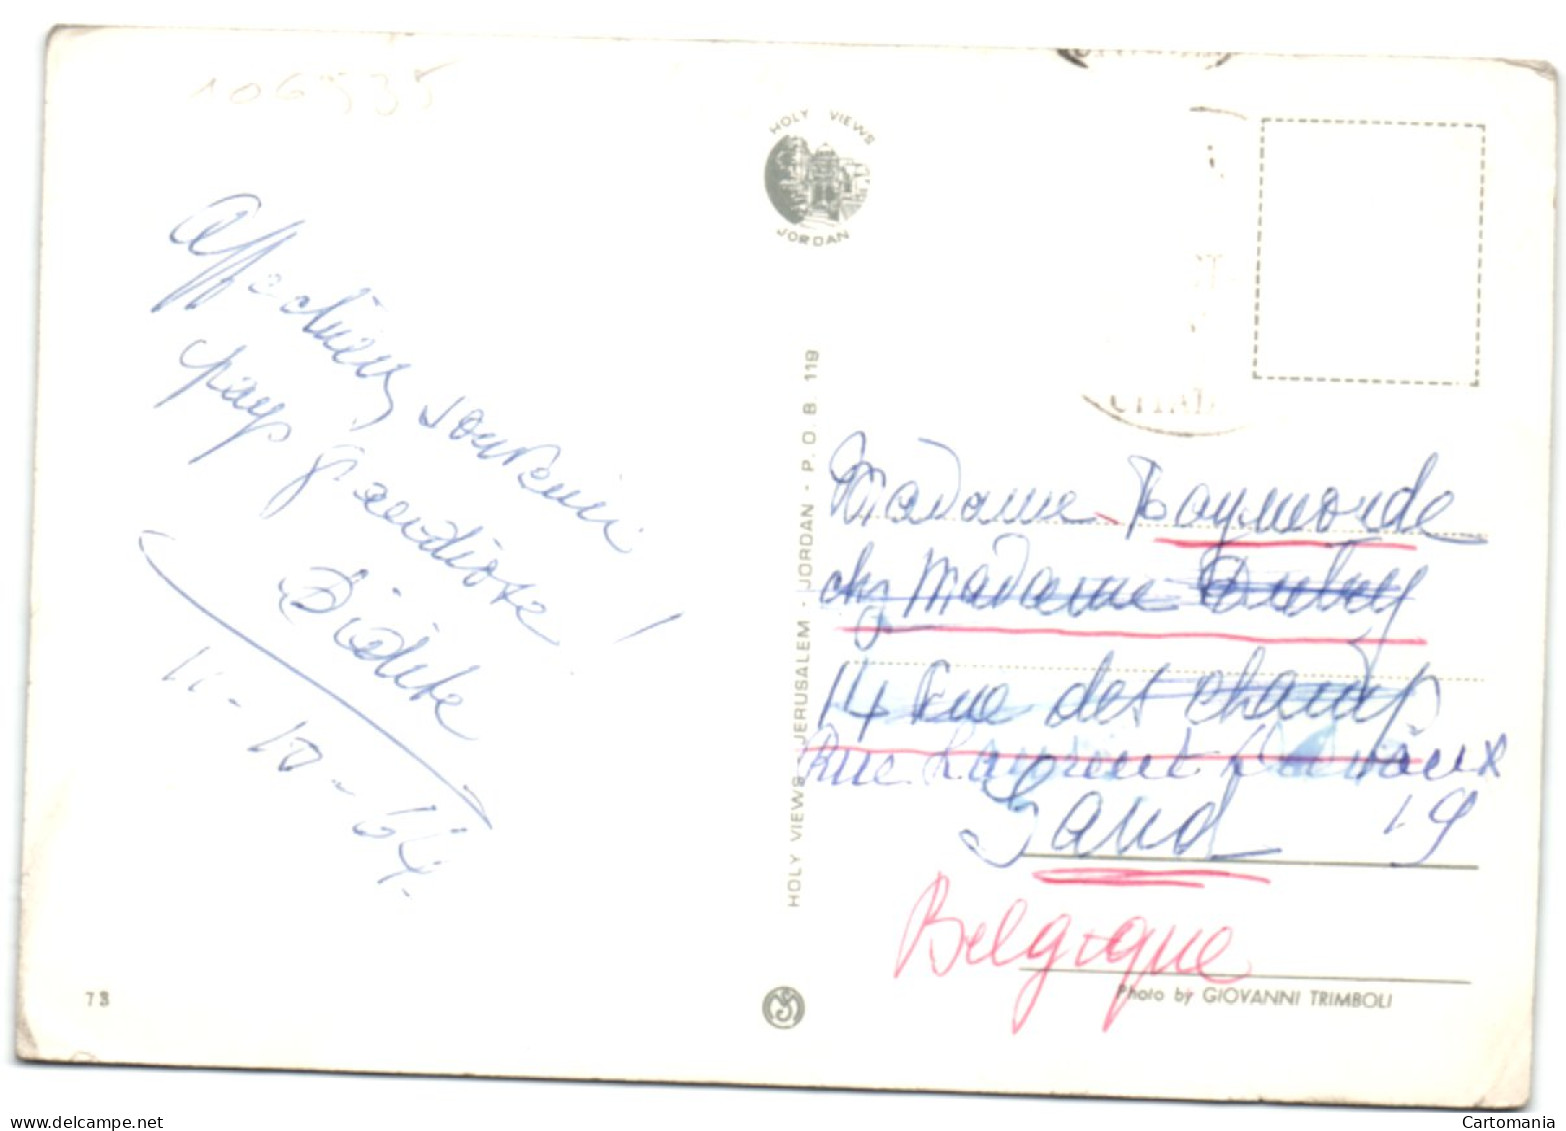 106535
Affectueux souvenir
pays grandiose !
11-10-64.
HOLY VIEWS
JORDAN
HOLY VIEWS JERUSALEM - JORDAN - P.O.B. 119
Madame Raymonde
chz Madame Aubry
14 Rue des champs
Rue Laurent Delvaux
19
Gand
Belgique
Photo by GIOVANNI TRIMBOLI
73
www.delcampe.net
Cartomania